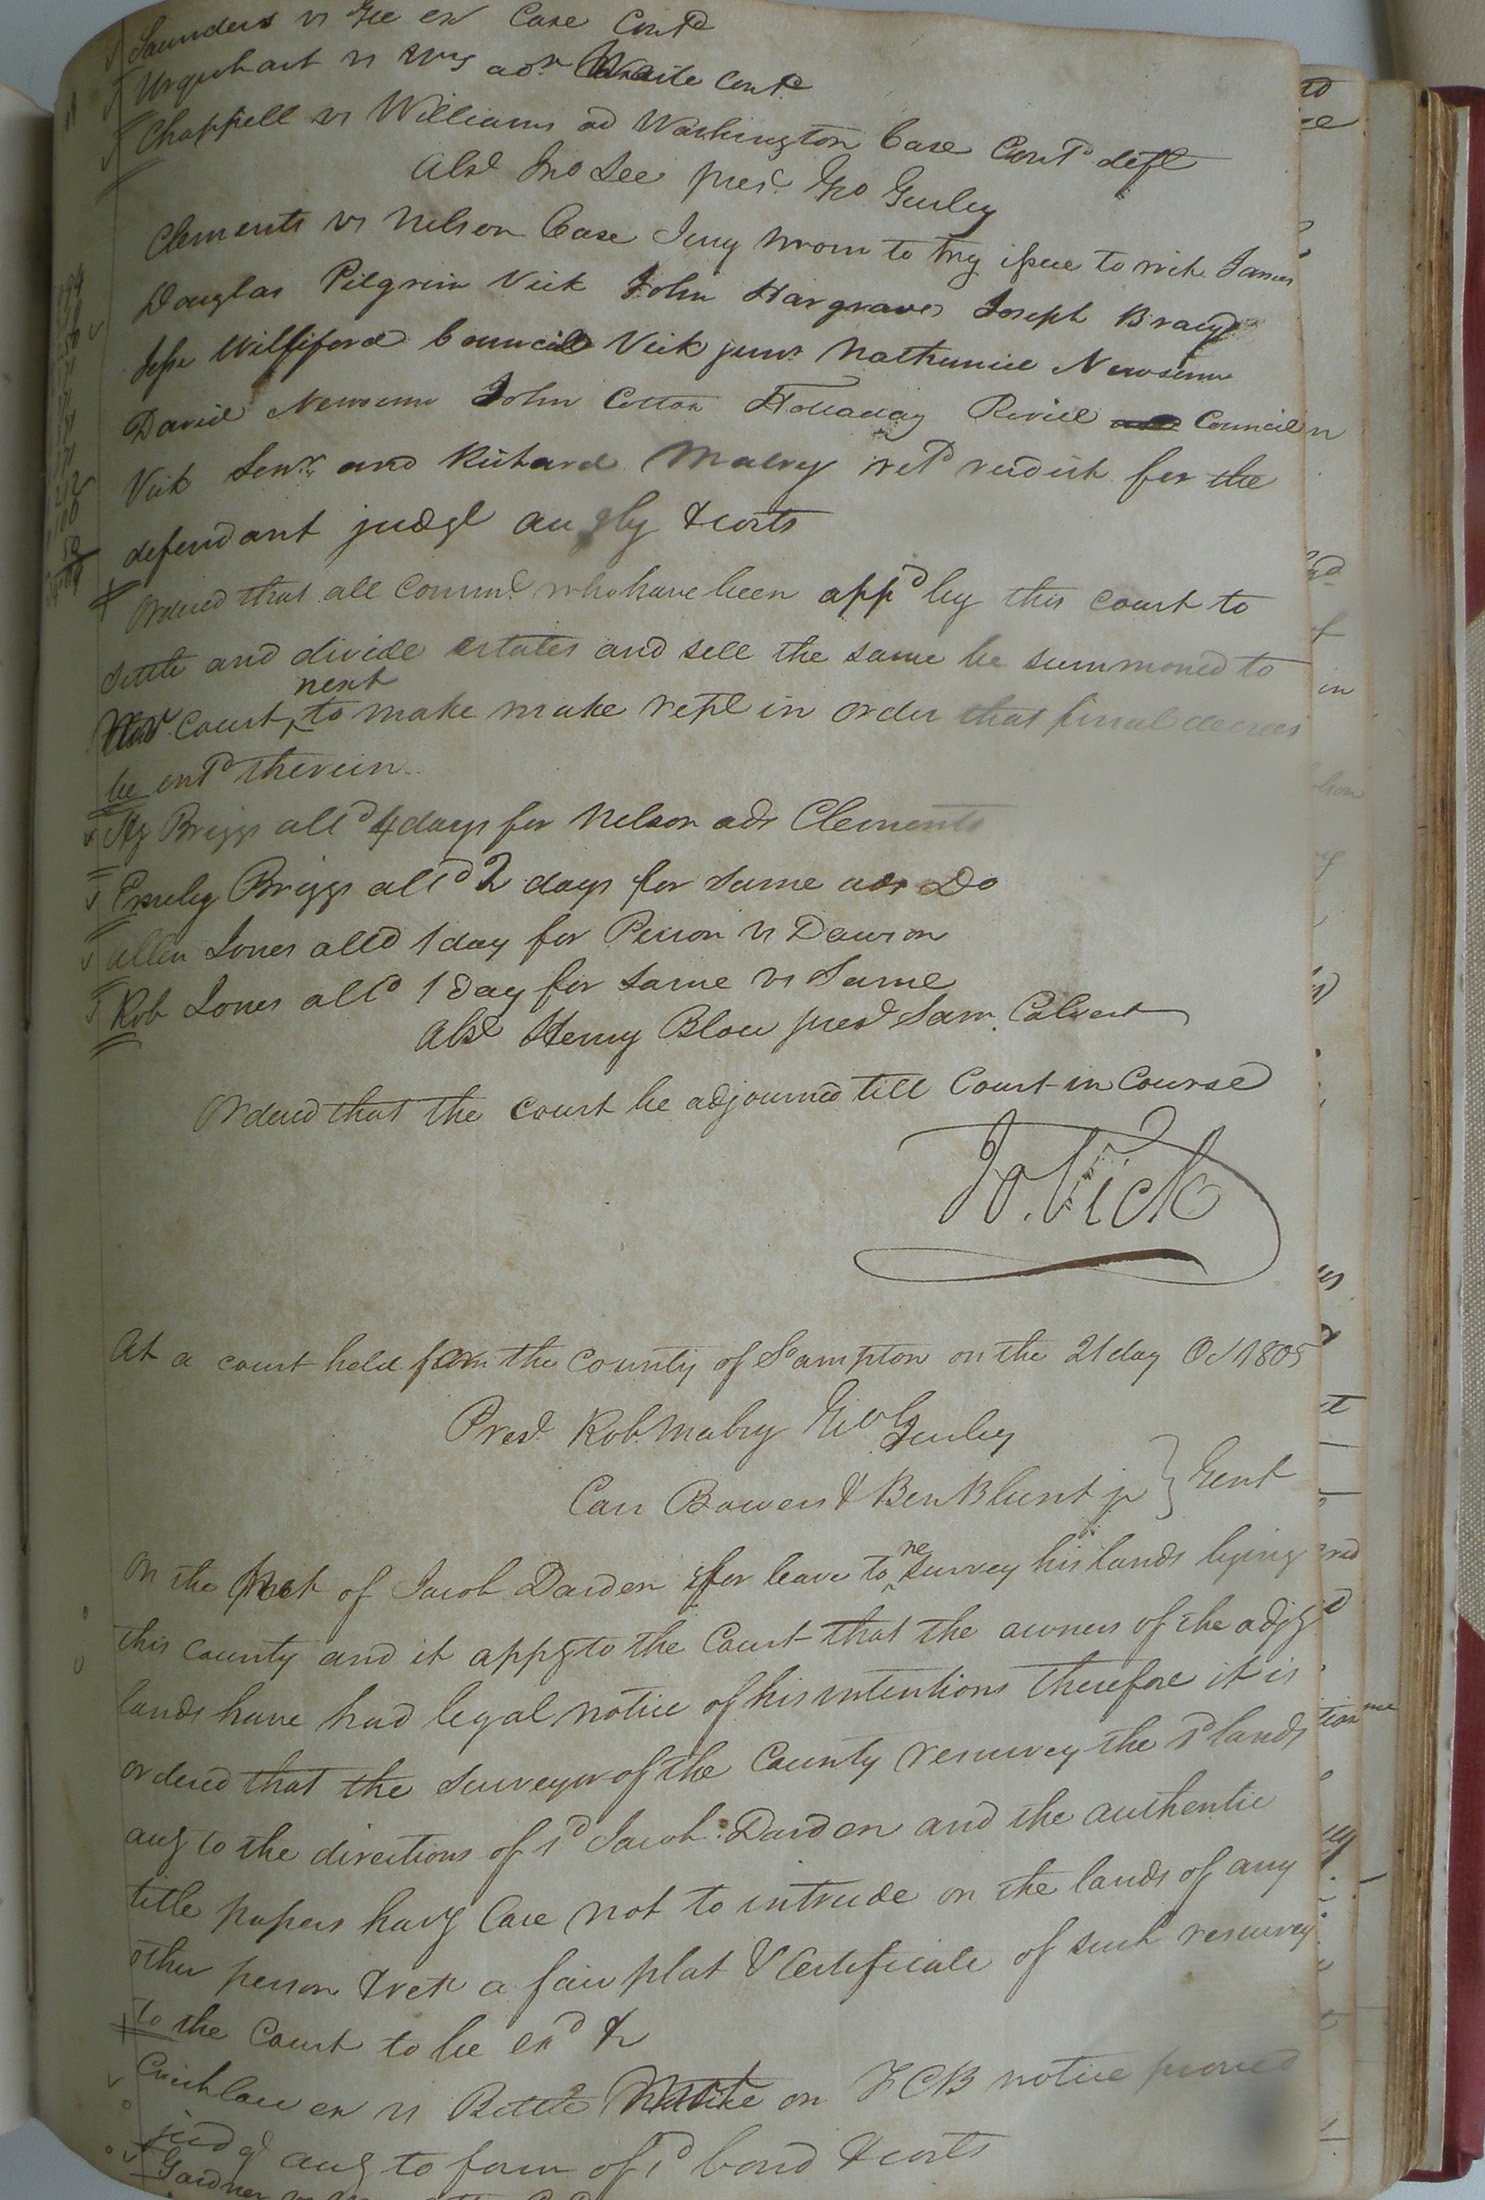 Saunders vs Gee ex Case Contd
Urquhart vs adr White Contd
Chappell vs Williams ad Washington Case Contd deft
Abst Jno Lee prest Geo Gurley
Clements vs Nelson Case Jury sworn to try issue to wit James
Douglas Pilgrim Vick John Hargraves Joseph
Jesse Williford Council Vick junr Nathaniel Newsum
David Newsum John Cotton Holladay Revill Council
Vick Senr and Richard retd verdict for the
defendant judgt accgly & costs
Ordered that all Commrs who have been appd by this court to
settle and divide estates and sell the same be summoned to
next
Court to make make rept in order that final decrees
be entd therein
Briggs alld 4 days for Nelson ads Clements
Briggs alld 2 days for same ads Do
Allen Jones alld 1 day for Person vs Dawson
Rob Jones alld 1 day for same vs Same
Abst Henry Blow prest Sam. Calvert
Ordered that the court be adjourned till Court in Course
Jo. Vick
At a court held for the County of Sampton on the 21 day Oct 1805
Prest Rob Mabry Geo Gurley
Carr Bowers & Ben Blunt jr } Gent
On the of Jacob Darden for leave to survey his lands lying
re
this County and it appg to the Court that the owners of the adjg
lands have had legal notice of his intentions therefore it is
ordered that the surveyor of the County resurvey the sd lands
accg to the directions of sd Jacob Darden and the authentic
title papers havg Care not to intrude on the lands of any
other person & retn a fair plat & Certificate of such resurvey
to the Court to be &
Crichlow ex vs Battle on F C B notice proved
judgt accg to form of sd bond & costs
Gardner vs